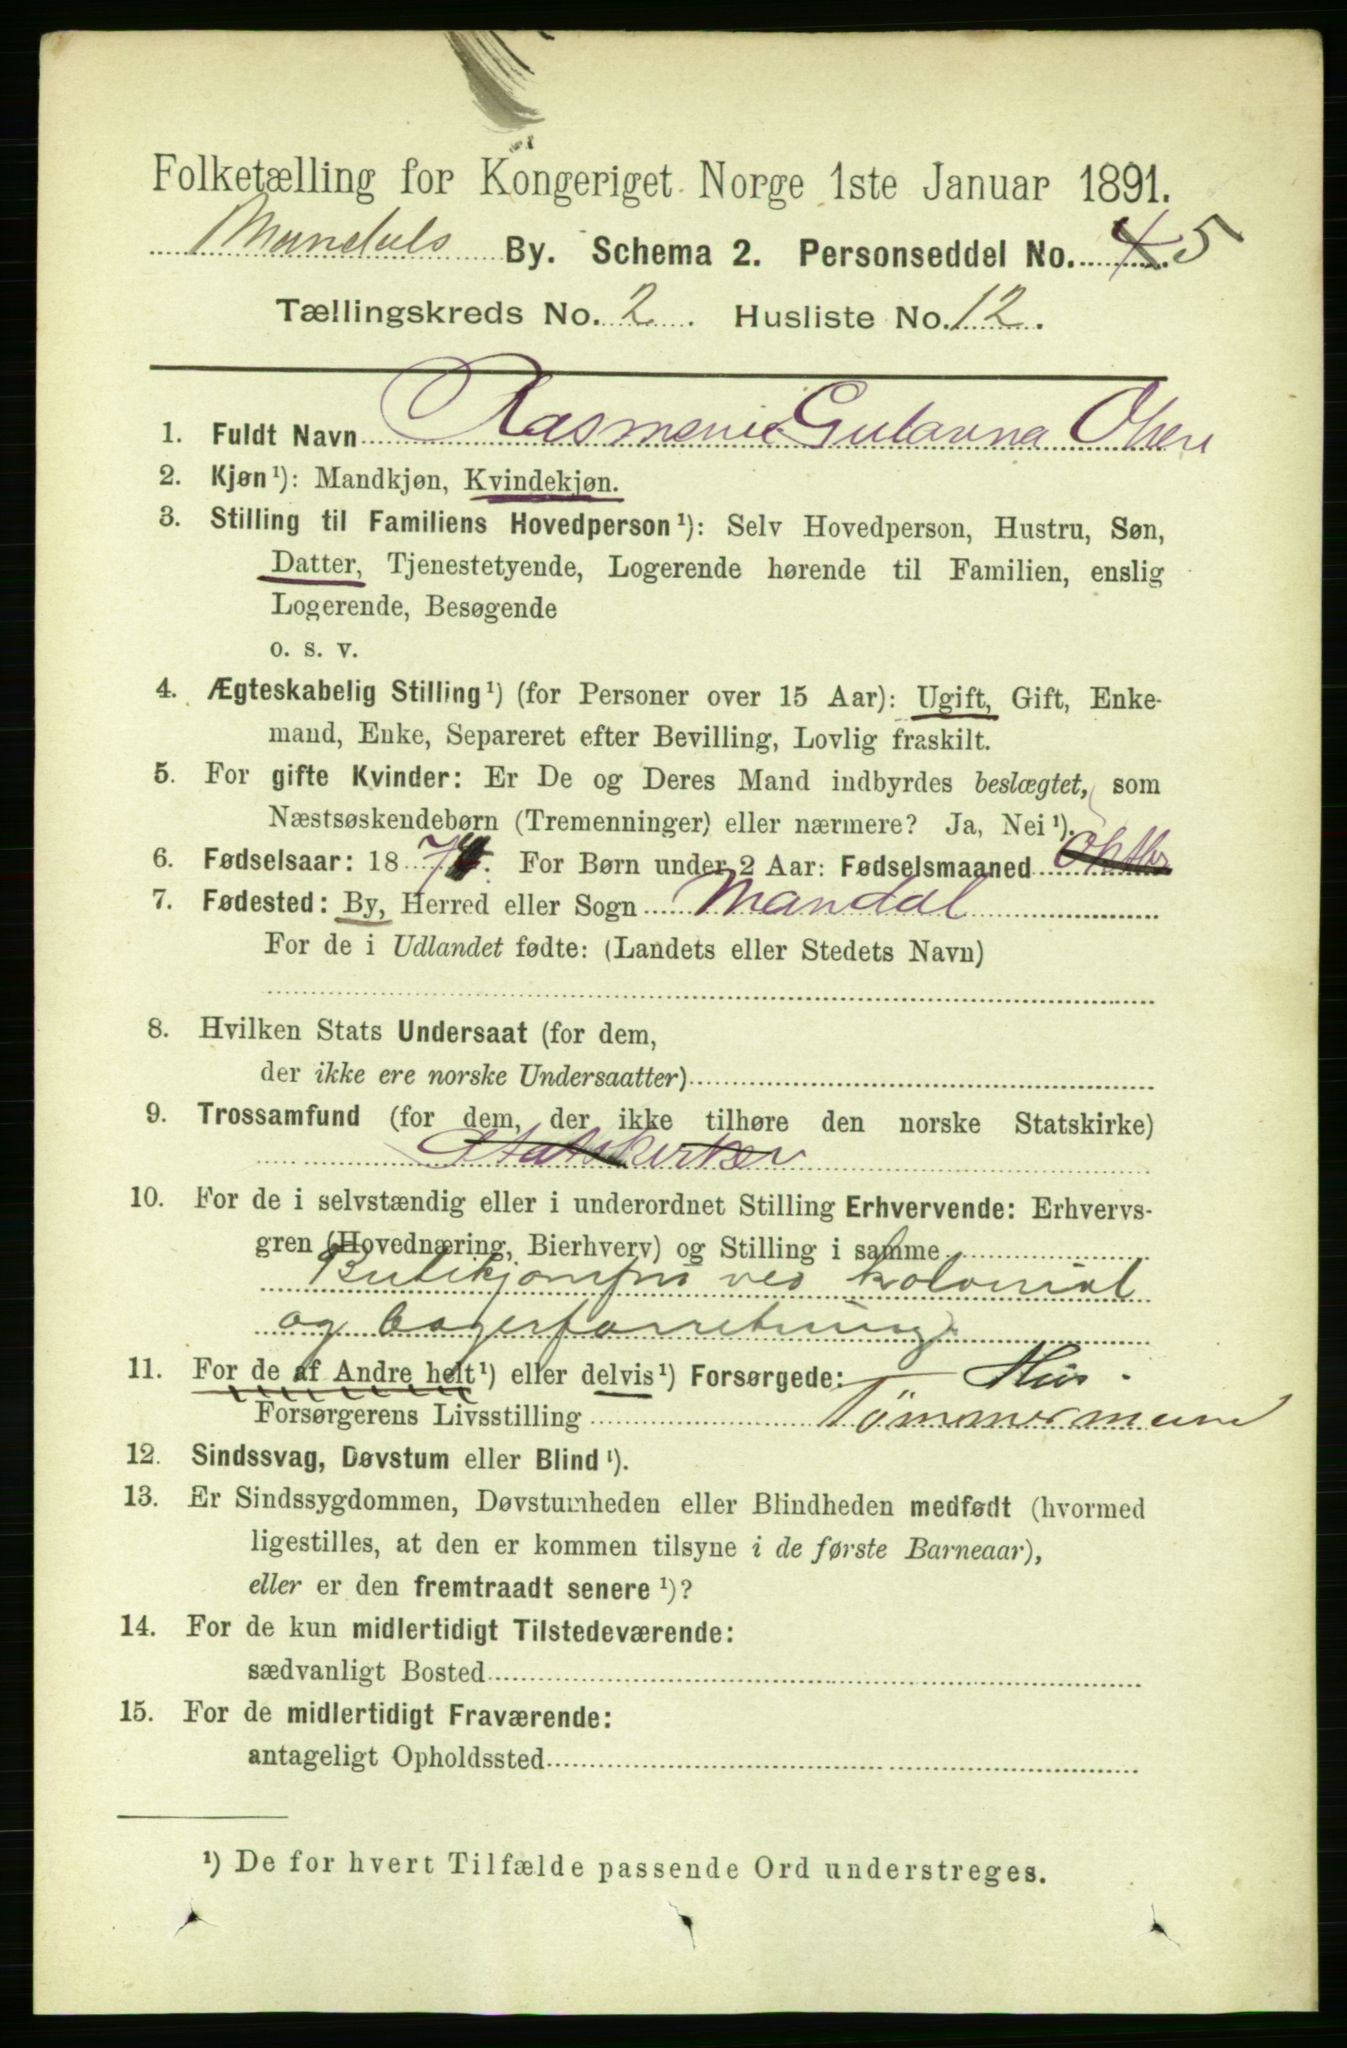 Folketælling for Kongeriget Norge 1ste Januar 1891.
Mandals By. Schema 2. Personseddel No. 4 5
Tællingskreds No. 2. Husliste No. 12.
1. Fuldt Navn Rasmenie Gulanna Olsen
2. Kjøn ¹): Mandkjøn, Kvindekjøn.
3. Stilling til Familiens Hovedperson ¹): Selv Hovedperson, Hustru, Søn,
Datter, Tjenestetyende, Logerende hørende til Familien, enslig
Logerende, Besøgende
o. s. v.
4. Ægteskabelig Stilling ¹) (for Personer over 15 Aar): Ugift, Gift, Enke-
mand, Enke, Separeret efter Bevilling, Lovlig fraskilt.
5. For gifte Kvinder: Er De og Deres Mand indbyrdes beslægtet, som
Næstsøskendebørn (Tremenninger) eller nærmere? Ja, Nei ¹).
6. Fødselsaar: 1874. For Børn under 2 Aar: Fødselsmaaned Oktbr
7. Fødested: By, Herred eller Sogn Mandal
For de i Udlandet fødte: (Landets eller Stedets Navn)
8. Hvilken Stats Undersaat (for dem,
der ikke ere norske Undersaatter)
9. Trossamfund (for dem, der ikke tilhøre den norske Statskirke)
Statskirken
10. For de i selvstændig eller i underordnet Stilling Erhvervende: Erhvervs-
gren (Hovednæring, Bierhverv) og Stilling i samme
Butikjomfru ved kolonial
og bagerforretning
11. For de af Andre helt ¹) eller delvis ¹) Forsørgede: Hus-
Forsørgerens Livsstilling Tømmermand
12. Sindssvag, Døvstum eller Blind ¹).
13. Er Sindssygdommen, Døvstumheden eller Blindheden medfødt (hvormed
ligestilles, at den er kommen tilsyne i de første Barneaar),
eller er den fremtraadt senere ¹)?
14. For de kun midlertidigt Tilstedeværende:
sædvanligt Bosted
15. For de midlertidigt Fraværende:
antageligt Opholdssted
¹) De for hvert Tilfælde passende Ord understreges.